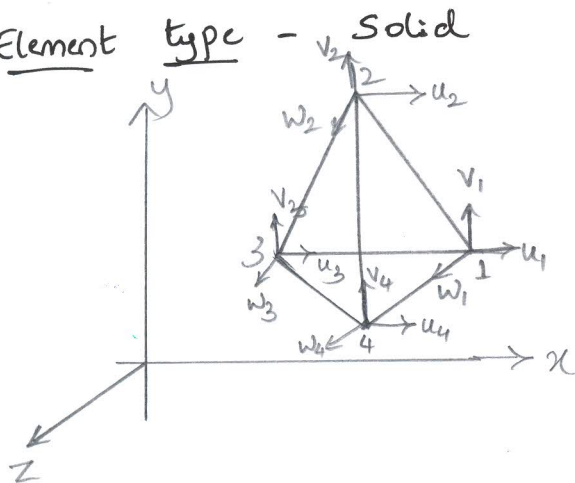 Element type - Solid
y
V2
2
u2
W2
V1
V3
3
u3
V4
u1
1
W1
W3
W4
4
u4
x
z